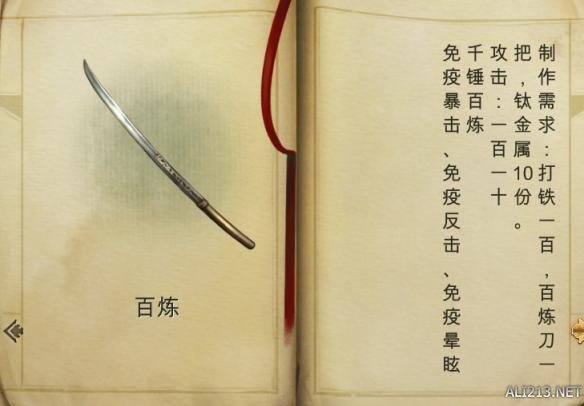 百炼
制作需求：打铁一百，百炼刀一
把，钛金属10份。
攻击：一百一十
千锤百炼
免疫暴击、免疫反击、免疫晕眩
ALI213.NET